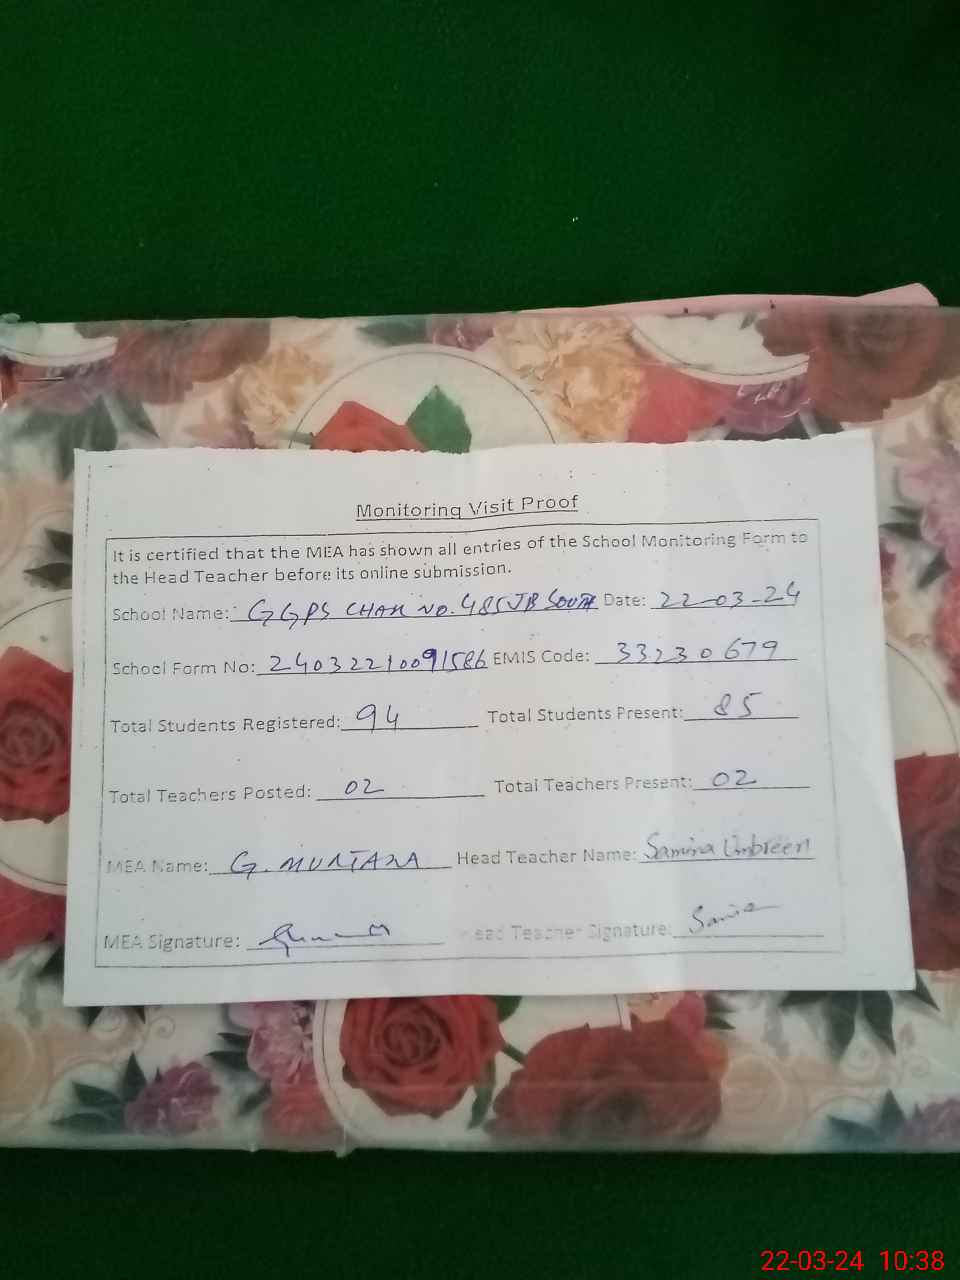 Monitoring Visit Proof
It is certified that the MEA has shown all entries of the School Monitoring Form to
the Head Teacher before its online submission.
School Name: GGPS CHAK NO. 485 JB SOUTH Date: 22-03-24
School Form No: 24032210091586 EMIS Code: 33230679
Total Students Registered: 94 Total Students Present: 85
Total Teachers Posted: 02 Total Teachers Present: 02
MEA Name: G. MURTAZA Head Teacher Name: Samina Umbreen
MEA Signature: Head Teacher Signature:
22-03-24 10:38